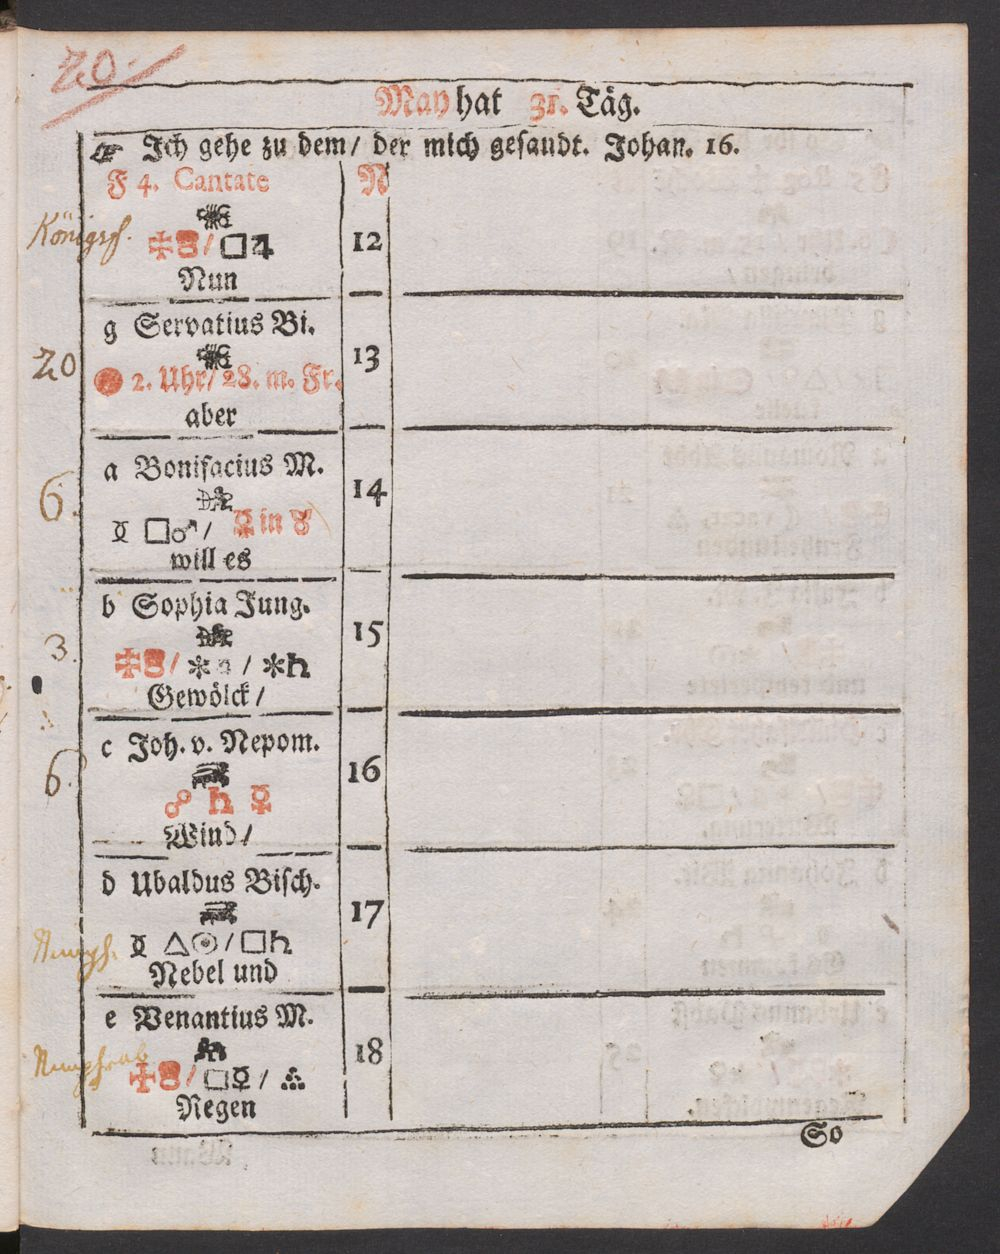 20.
May hat 31. Täg.
☞ Ich gehe zu dem / der mich gesandt. Johan. 16.
F 4. Cantate N
♏
Königss.
□♃
12
Nun
g Servatius Bi.
♏
20
13
2. Uhr / 28. m. Fr.
aber
a Bonifacius M.
♐
6.
14
☿ □♂ / ☿ in ♉
will es
b Sophia Jung.
♐
3.
15
/ ✱ / ✱♄
Gewölck /
c Joh. v. Nepom.
♑
6.
16
☍ ♄ ☿
Wind /
d Ubaldus Bisch.
♑
17
☿ △☉ / □♄
Nebel und
e Venantius M.
♒
18
/ □☿ / ⛬
Regen
So